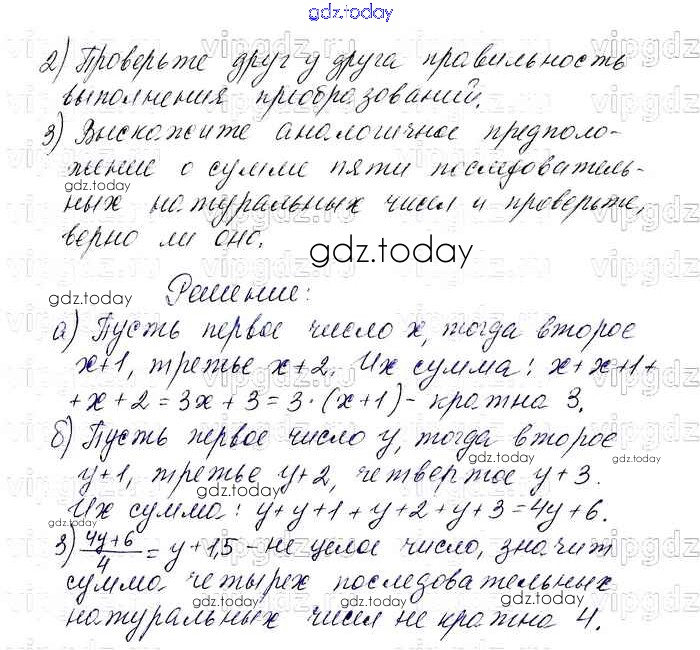 gdz.today
2) Проверьте друг у друга правильность
выполнения преобразований.
3) Выскажите аналогичное предполо-
жение о сумме пяти последователь-
gdz.today
ных натуральных чисел и проверьте,
верно ли оно.
gdz.today
gdz.today
Решение:
а) Пусть первое число x, тогда второе
x+1, третье x+2. Их сумма: x+x+1+
gdz.today
+x+2=3x+3=3·(x+1)- кратна 3.
б) Пусть первое число y, тогда второе
gdz.today
gdz.today
y+1, третье y+2, четвертое y+3.
gdz.today
Их сумма: y+y+1+y+2+y+3=4y+6.
3) (4y+6)/4 = y+1,5 - не целое число, значит
gdz.today
сумма четырех последовательных
gdz.today
gdz.today
натуральных чисел не кратна 4.